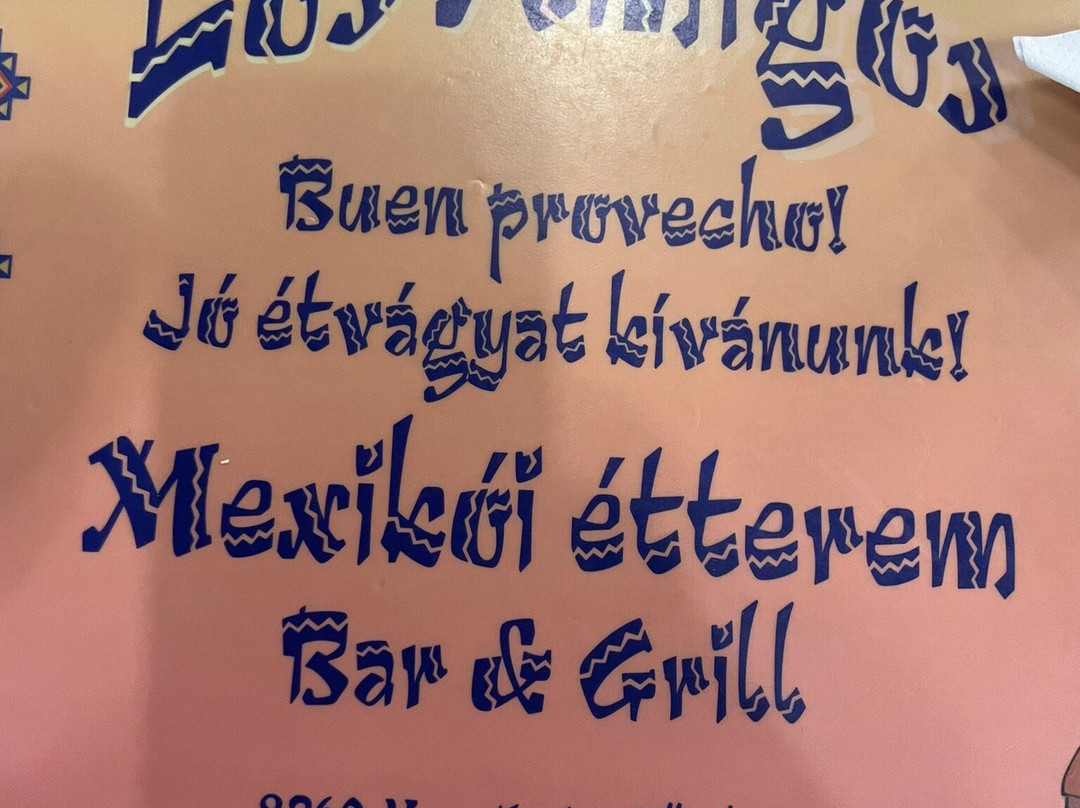 Los Amigos
Buen provecho!
Jó étvágyat kívánunk!
Mexikói étterem
Bar & Grill